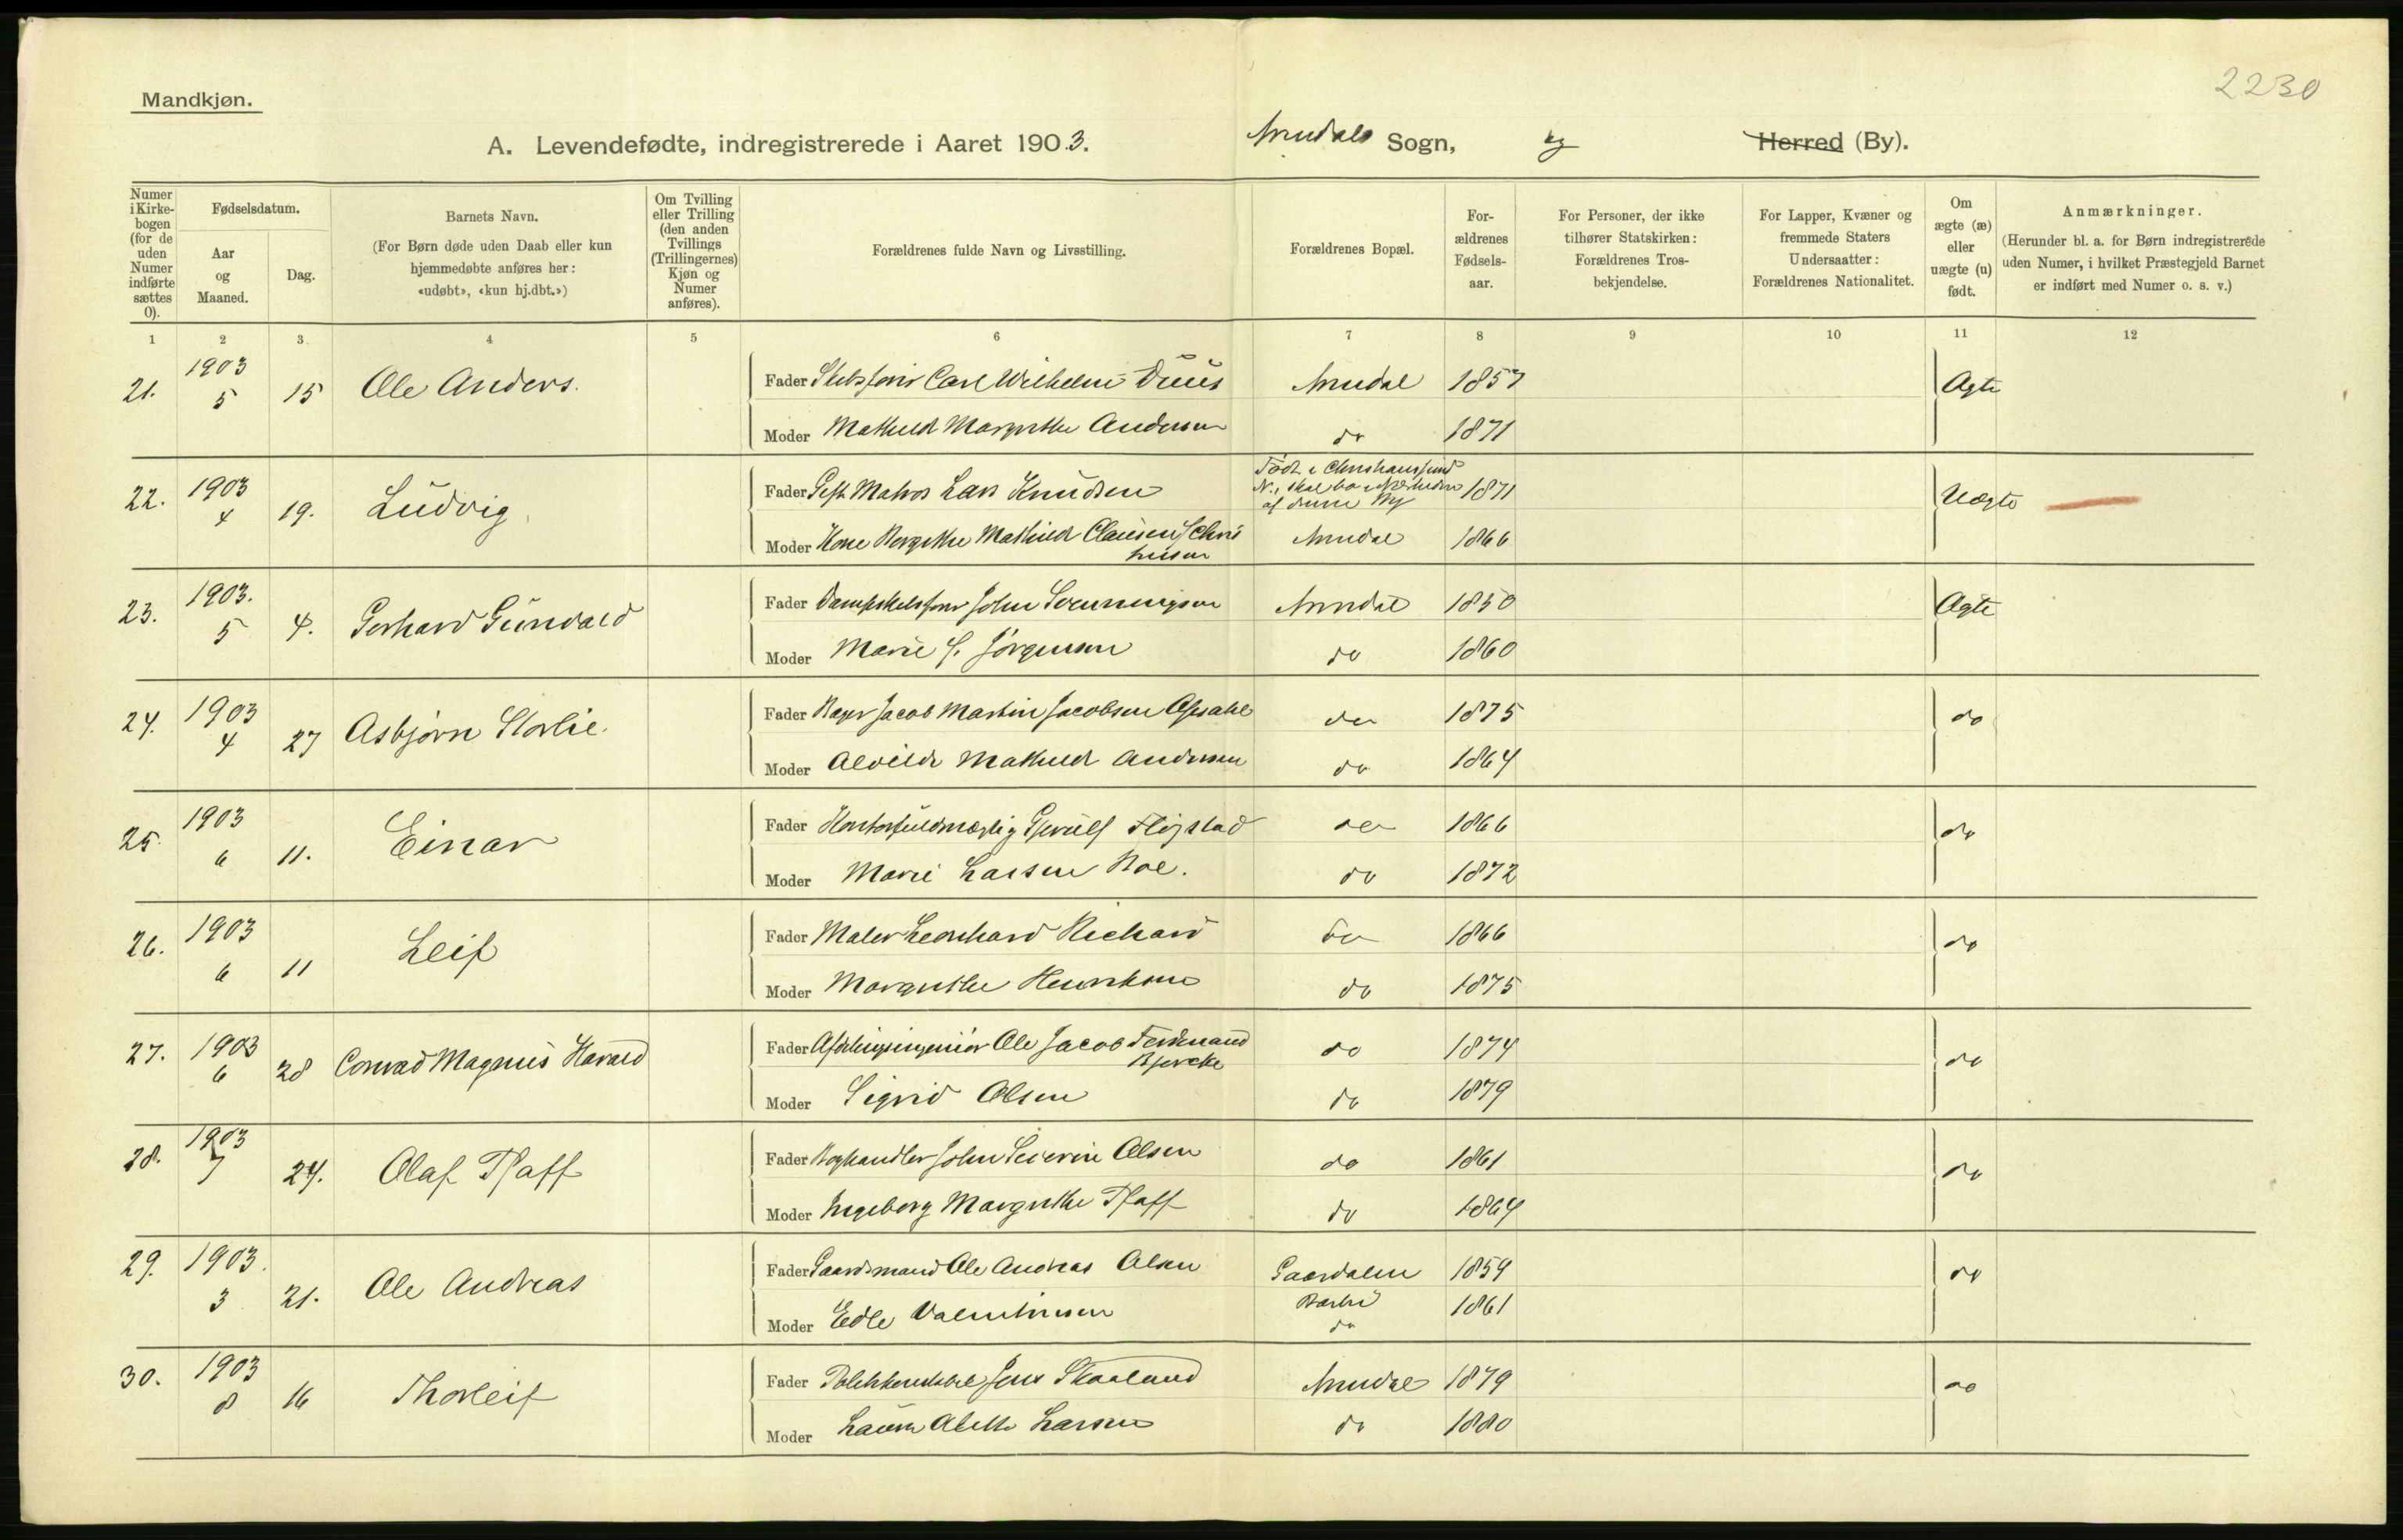 2230
Mandkjøn.
A. Levendefødte, indregistrerede i Aaret 1903. Arendals Sogn, by Herred (By).
Numer i Kirkebogen (for de uden Numer indførte sættes 0).
Fødselsdatum.
Aar og Maaned.
Dag.
Barnets Navn.
(For Børn døde uden Daab eller kun
hjemmedøbte anføres her:
«udøbt», «kun hj.dbt.»)
Om Tvilling
eller Trilling
(den anden
Tvillings
(Trillingernes)
Kjøn og
Numer
anføres).
Forældrenes fulde Navn og Livsstilling.
Forældrenes Bopæl.
For-
ældrenes
Fødsels-
aar.
For Personer, der ikke
tilhører Statskirken:
Forældrenes Tros-
bekjendelse.
For Lapper, Kvæner og
fremmede Staters
Undersaatter:
Forældrenes Nationalitet.
Om
ægte (æ)
eller
uægte (u)
født.
Anmærkninger.
(Herunder bl. a. for Børn indregistrerede
uden Numer, i hvilket Præstegjeld Barnet
er indført med Numer o. s. v.)
1 2 3 4 5 6 7 8 9 10 11 12
21. 1903 5 15 Ole Anders. Fader Skibsfører Carl Wilhelm Duus Arendal 1857 Ægte
Moder Mathild Margrethe Andersen do 1871
22. 1903 4 19. Ludvig Fader Gift Matros Lars Knudsen Født i Christianssund
N., skal bo i Nærheden
af denne By 1871 Uægte
Moder Kone Mathilde Clausen Arendal 1866
23. 1903. 5 4. Gerhard Gunvald Fader Dampskibsfører John Arendal 1850 Ægte
Moder Marie Jørgensen do 1860
24. 1903 4 27 Asbjørn Storlie. Fader Bager Jacob Martin Jacobsen do 1875 do
Moder Alvilde Mathild Andersen do 1864
25. 1903 6 11. Einar Fader Kontorfuldmægtig Gjerulf Fløistad do 1866 do
Moder Marie Larsen Roe. do 1872
26. 1903 6 11 Leif Fader Maler Leonhard Richard do 1866 do
Moder Margrethe Henriksen do 1875
27. 1903 6 28 Conrad Magnus Harald Fader Afdelingsingeniør Ole Jacob Ferdinand
Bjercke do 1874 do
Moder Sigrid Olsen do 1879
28. 1903 7 24. Olaf Pfaff Fader Boghandler John Severin Olsen do 1861 do
Moder Ingeborg Margrethe Pfaff do 1864
29. 1903. 3 21. Ole Andreas Fader Gaardmand Ole Andreas Olsen Gaardalen
Barbu 1859 do
Moder Edle Valentinsen do 1861
30. 1903 8 16 Thorleif Fader Politikonstabel Jens Skaaland Arendal 1879 do
Moder Laura Larsen do 1880